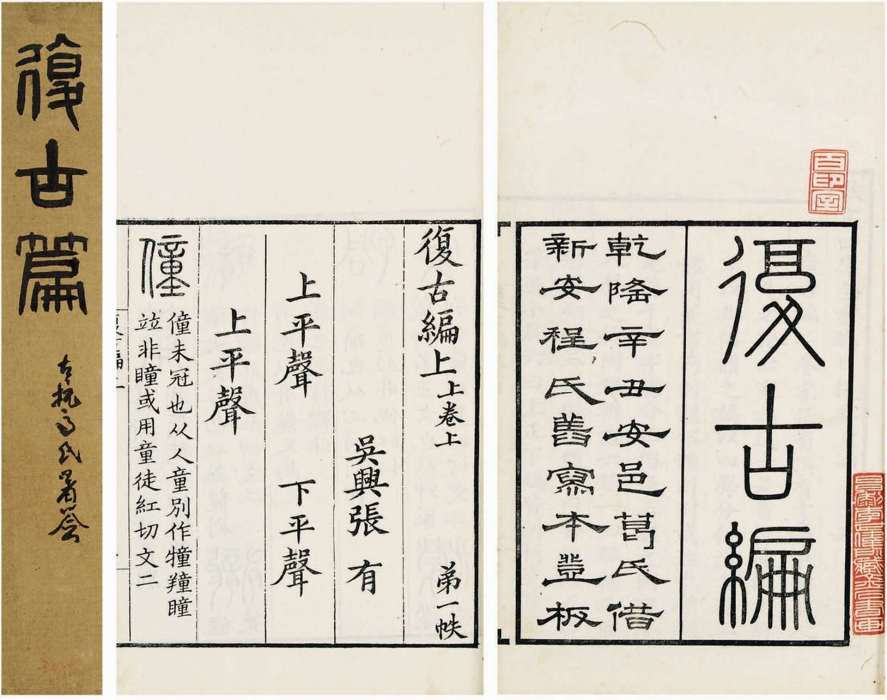 復古編
乾隆辛丑安邑葛氏借
新安程氏舊寫本登板
百印室
復古編上 上卷上 弟一帙
吳興張有
上平聲 下平聲
上平聲
僮 僮未冠也从人童別作犝䍶瞳
竝非瞳或用童徒紅切文二
復古篇
古杭高氏署簽